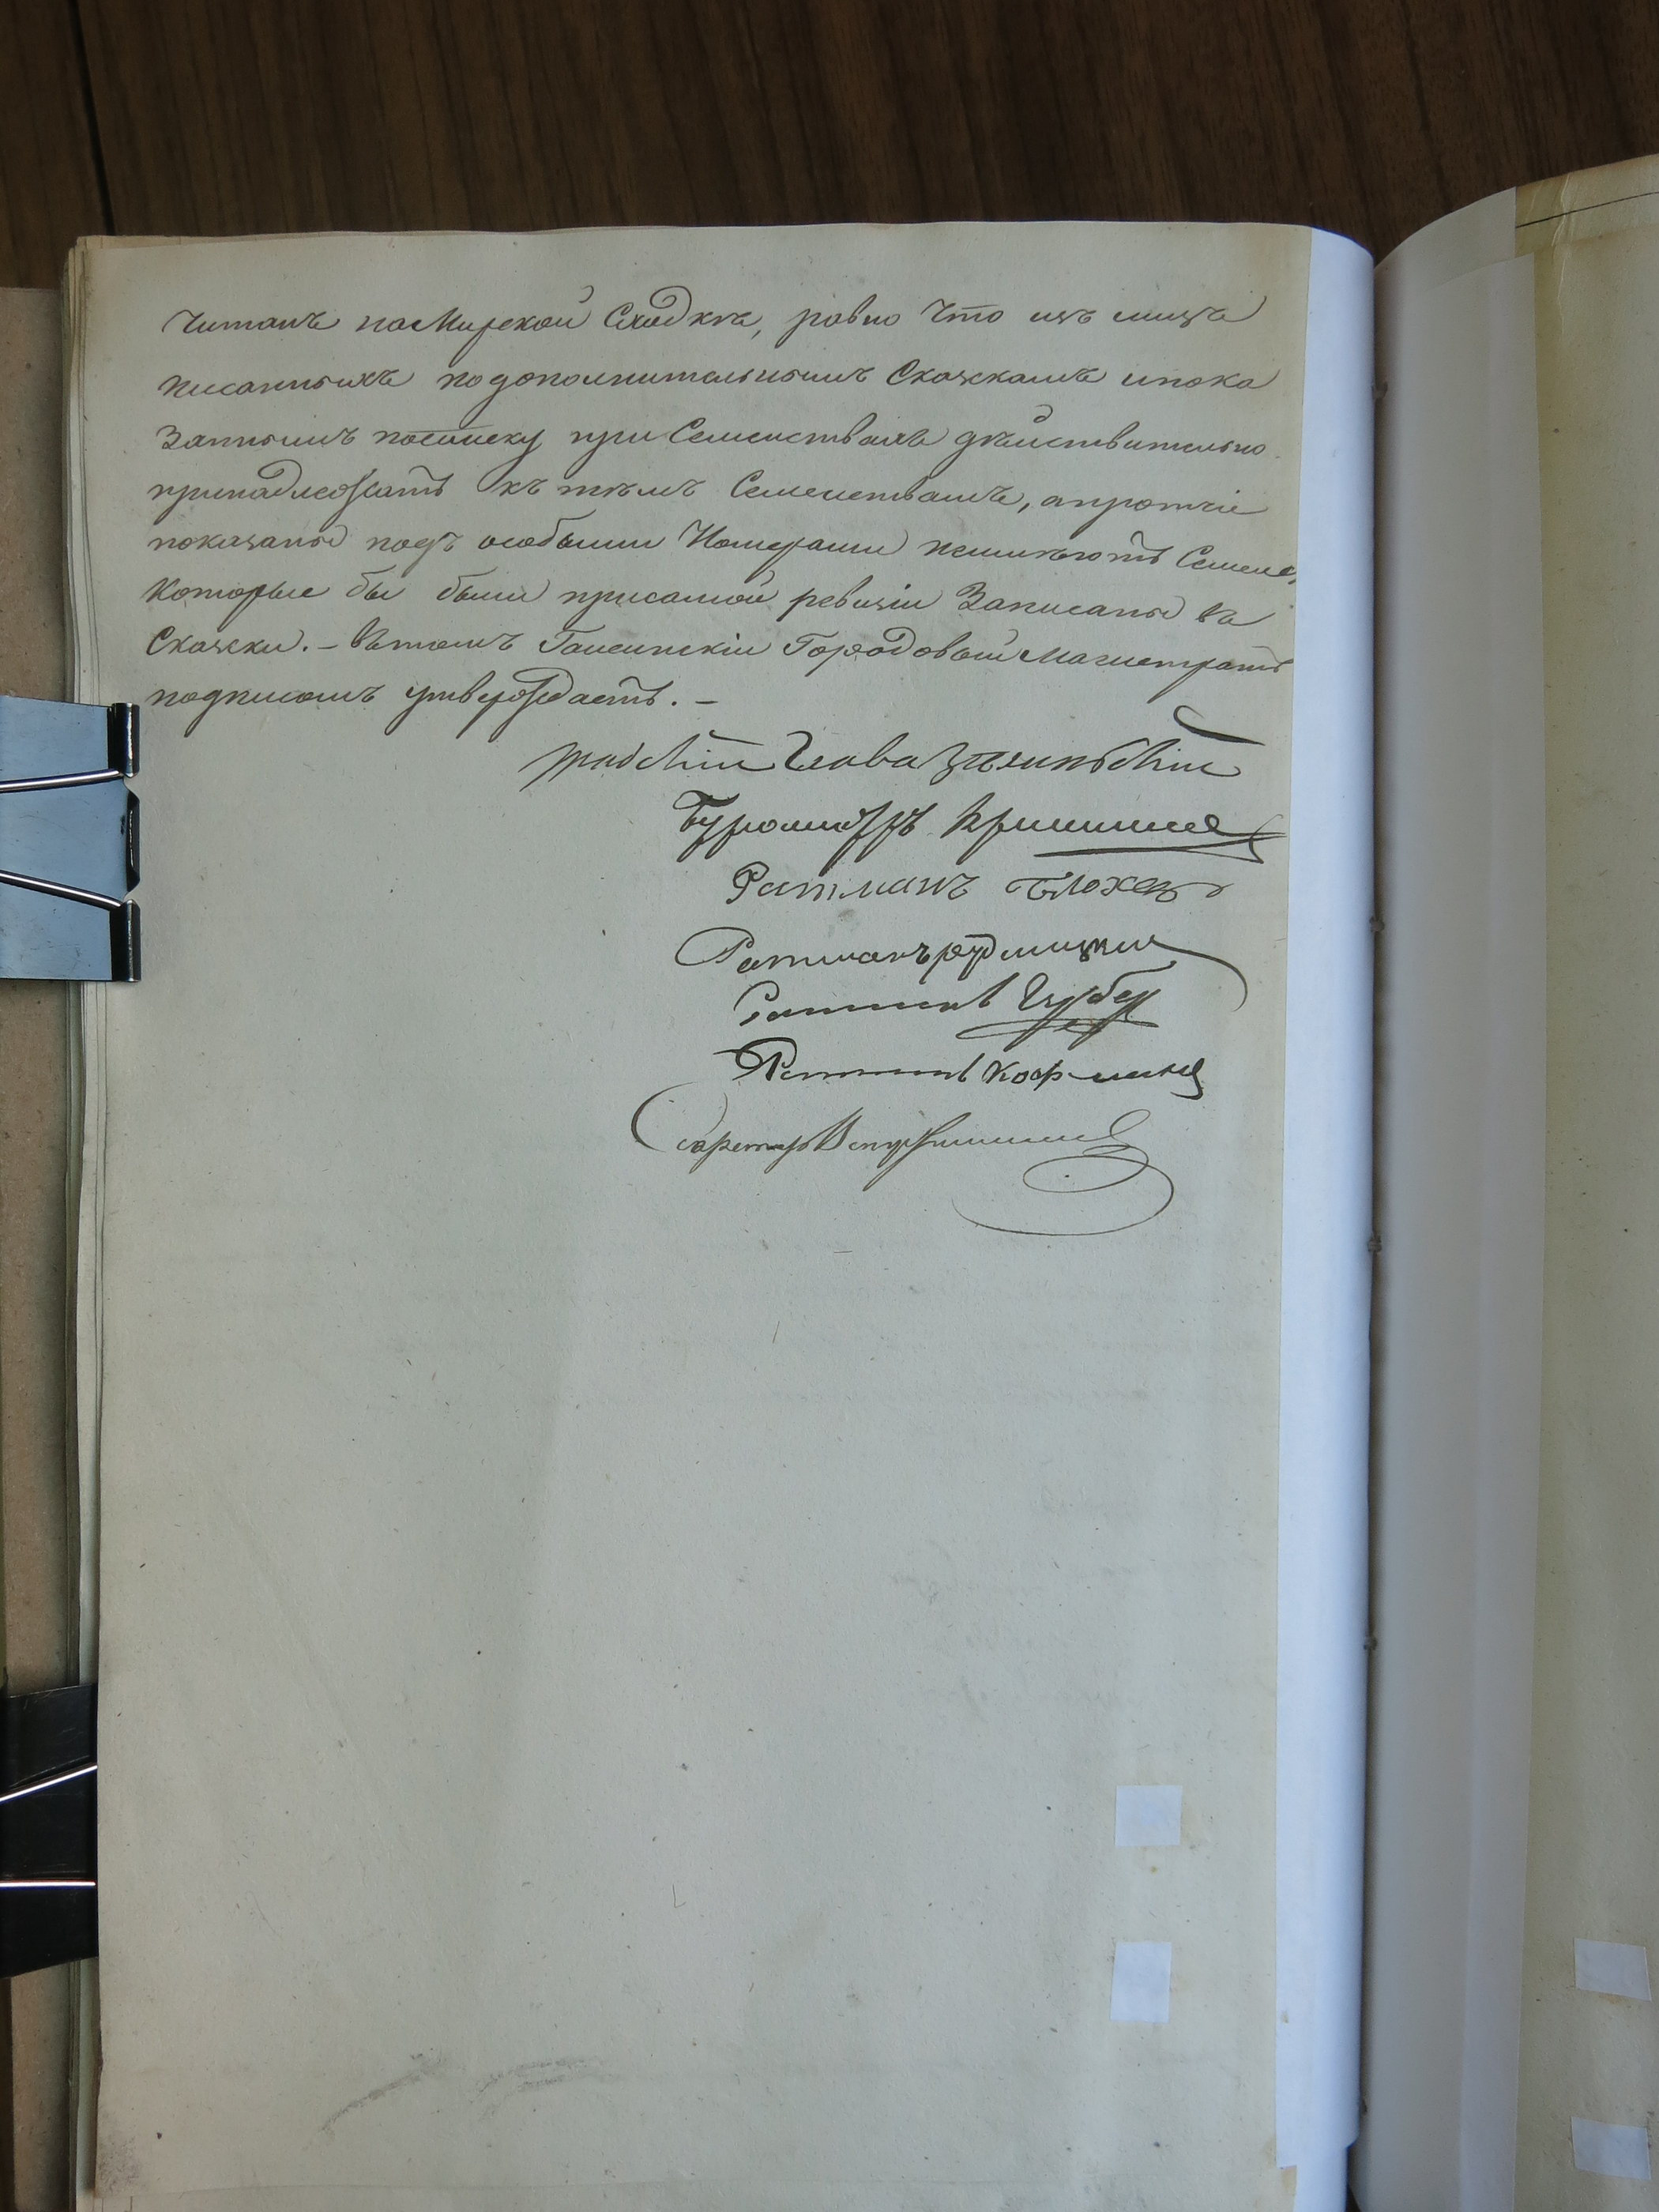 читанъ на Мирской Сходкѣ, равно что изъ лицъ
писанныхъ по дополнительнымъ Сказкамъ и пока
занныхъ по списку при Семействахъ дѣйствительно
принадлежатъ къ тѣмъ Семействамъ, а протчіе
показаны подъ особыми Номерами неимѣютъ Семей,
которые бы были при самой ревизіи Записаны въ
Сказки. – Въ томъ Гайсинскій Городовый Магистратъ
подписомъ утверждаетъ. –
Градскій Глава
Бургомистръ
Ратманъ Блохъ
Ратманъ
Ратманъ Гербер
Ратманъ Кофманъ
Секретарь